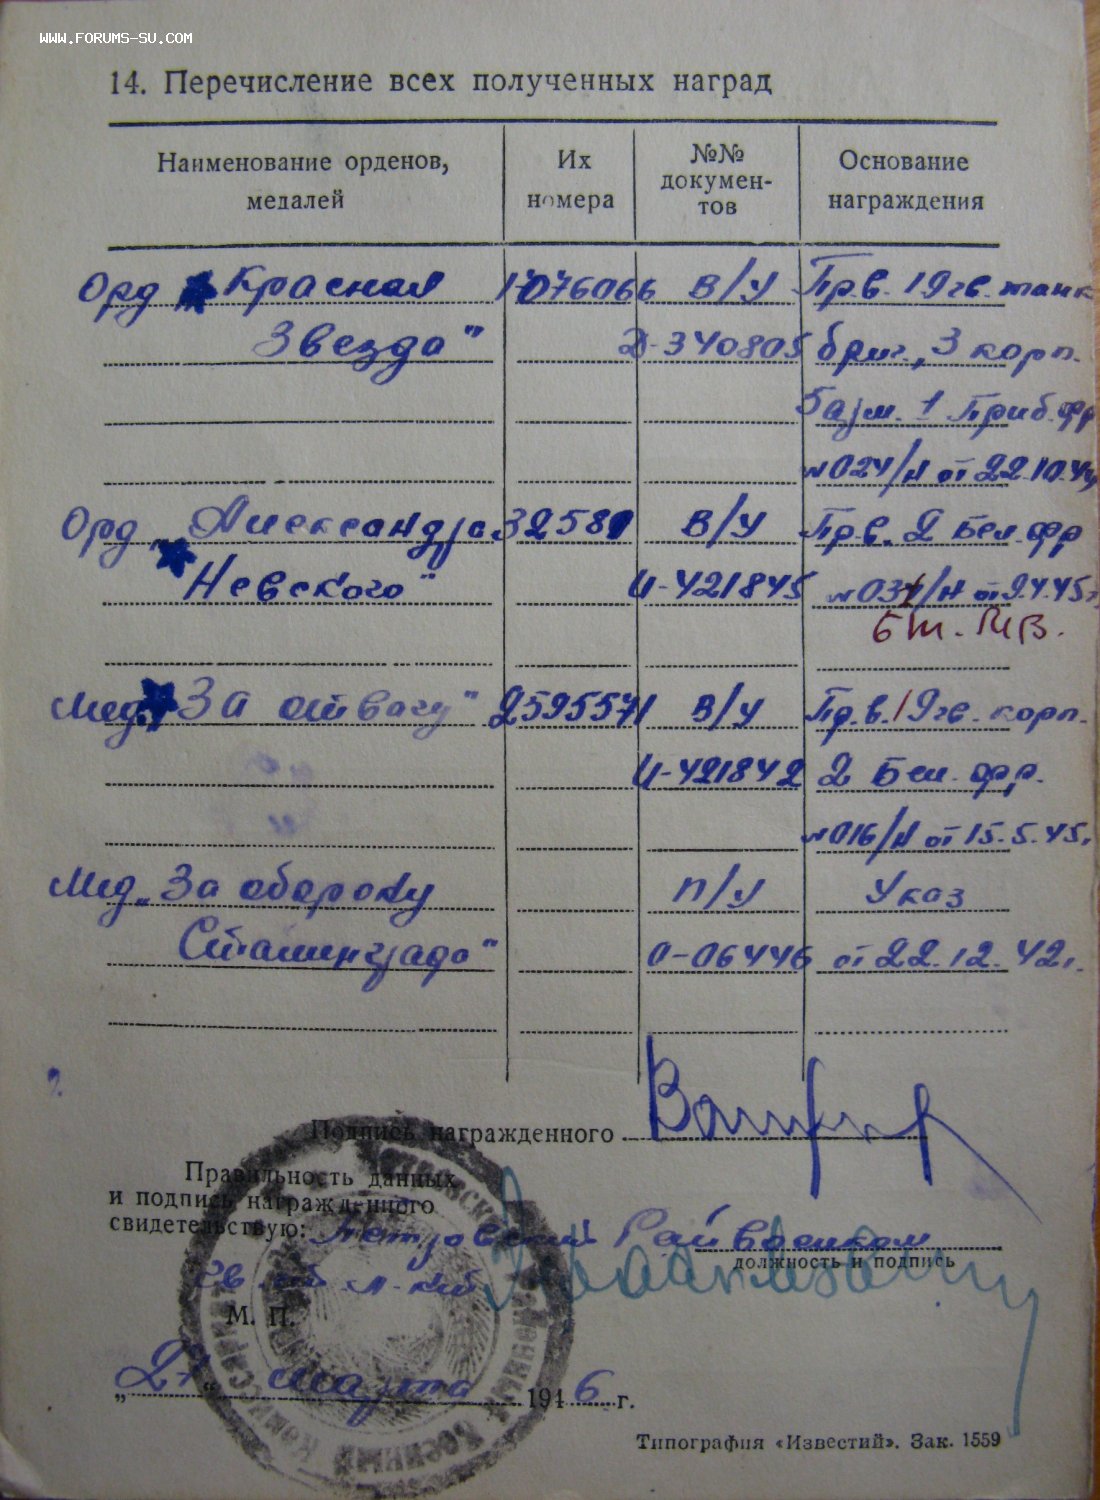 www.forums-su.com
14. Перечисление всех полученных наград
Наименование орденов, медалей
Их номера
№№ документов
Основание награждения
Орд „Красная 1076066 В/У Пр.в. 19 гв. танк
Звезда" Д-340805 бриг., 3 корп.
1 Приб. фр
№024/н от 22.10.44
Орд „Александра 32581 В/У Пр.в. 2 Бел. фр
Невского" И-421845 №03 /н от 9.4.45г
БТ. МВ.
Мед. „За отвагу" 2595571 В/У Пр.в. 19 гв. корп.
И-421842 2 Бел. фр.
№016/н от 15.5.45г
Мед „За оборону П/У Указ
Сталинграда" О-06446 от 22.12.42г.
Подпись награжденного
Правильность данных
и подпись награжденного
свидетельствую: Петровский Райвоенком
должность и подпись
М. П.
„27" марта 1946 г.
Типография «Известий». Зак. 1559